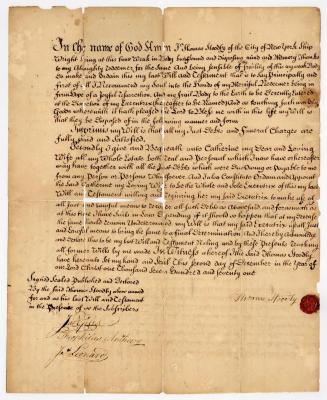 In the name of God Amen I Thomas Stoodly of the City of New York Ship
Wright being at this time Weak in Body but Sound and Disposing mind and Memory Thanks be
to my Almighty Redeemer for the Same And being sensible of frailty of this my weak Body
do make and Ordain this my last Will and Testament that is to Say Principally and
first of all I Recommend my Soul into the Hands of my Merciful Redeemer being in
hope of a Joyful Resurrection And my frail Body to the Earth to be Decently Buried
at the Discretion of my Executrix hereafter to be Named And as touching such worldly
Goods wherewith it hath pleased the Lord to Help me with in this life my Will is
that they be Disposed of in the following manner and form
Imprimis my Will is that all my Just Debts and Funeral Charges are
fully paid and Satisfied
Secondly I give and Bequeath unto Catherine my Dear and Loving
Wife all my Whole Estate both real and Personal which I now have or hereafter
may have together with all the Just Debts which are Due Owing or Payable to me
from any Person or Persons Whatsoever And I also Constitute Ordain and appoint
the Said Catherine my Loving to be the Whole and Sole Executrix of this my last
Will and Testament willing and Requiring her my Said Executrix to make use of
all just and lawful means to
at this time Stand in
the same hand
and lawful means to bring the same to a final Determination And I hereby Acknowledge
and Declare this to be my last Will and Testament Making and by these Presents Revoking
all former Wills by me made In Witness whereof I The Said Thomas Stoodly
have hereunto Set my hand and Seal this Second day of December in the Year of
our Lord Christ one Thousand Seven Hundred and Seventy one
Signed Sealed Published and Declared
By the said Thomas Stoodly above named
for and as his Last Will and Testament
in the Presence of us the Subscribers
Thomas Stoodly
Theophilus Anthony
Leonard